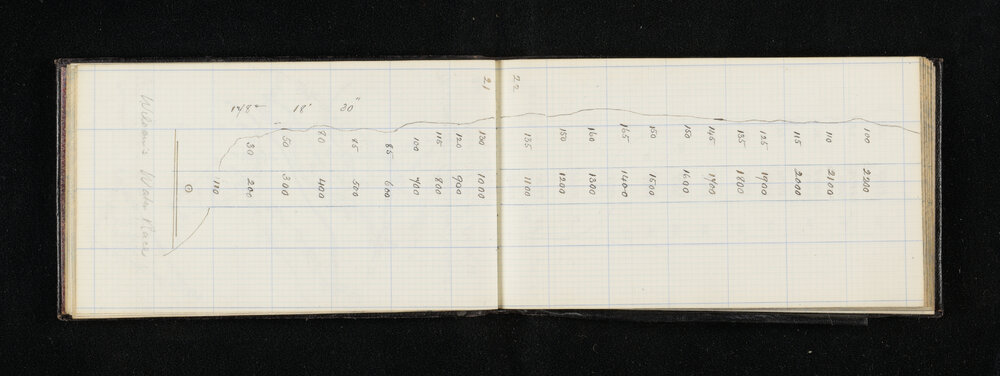 21
22
18'
30"
30
50
80
85
85
100
115
120
130
135
150
160
165
150
150
145
135
125
115
110
100
110
200
300
400
500
600
700
800
900
1000
1100
1200
1300
1400
1500
1600
1700
1800
1900
2000
2100
2200
Wilson's Water Place